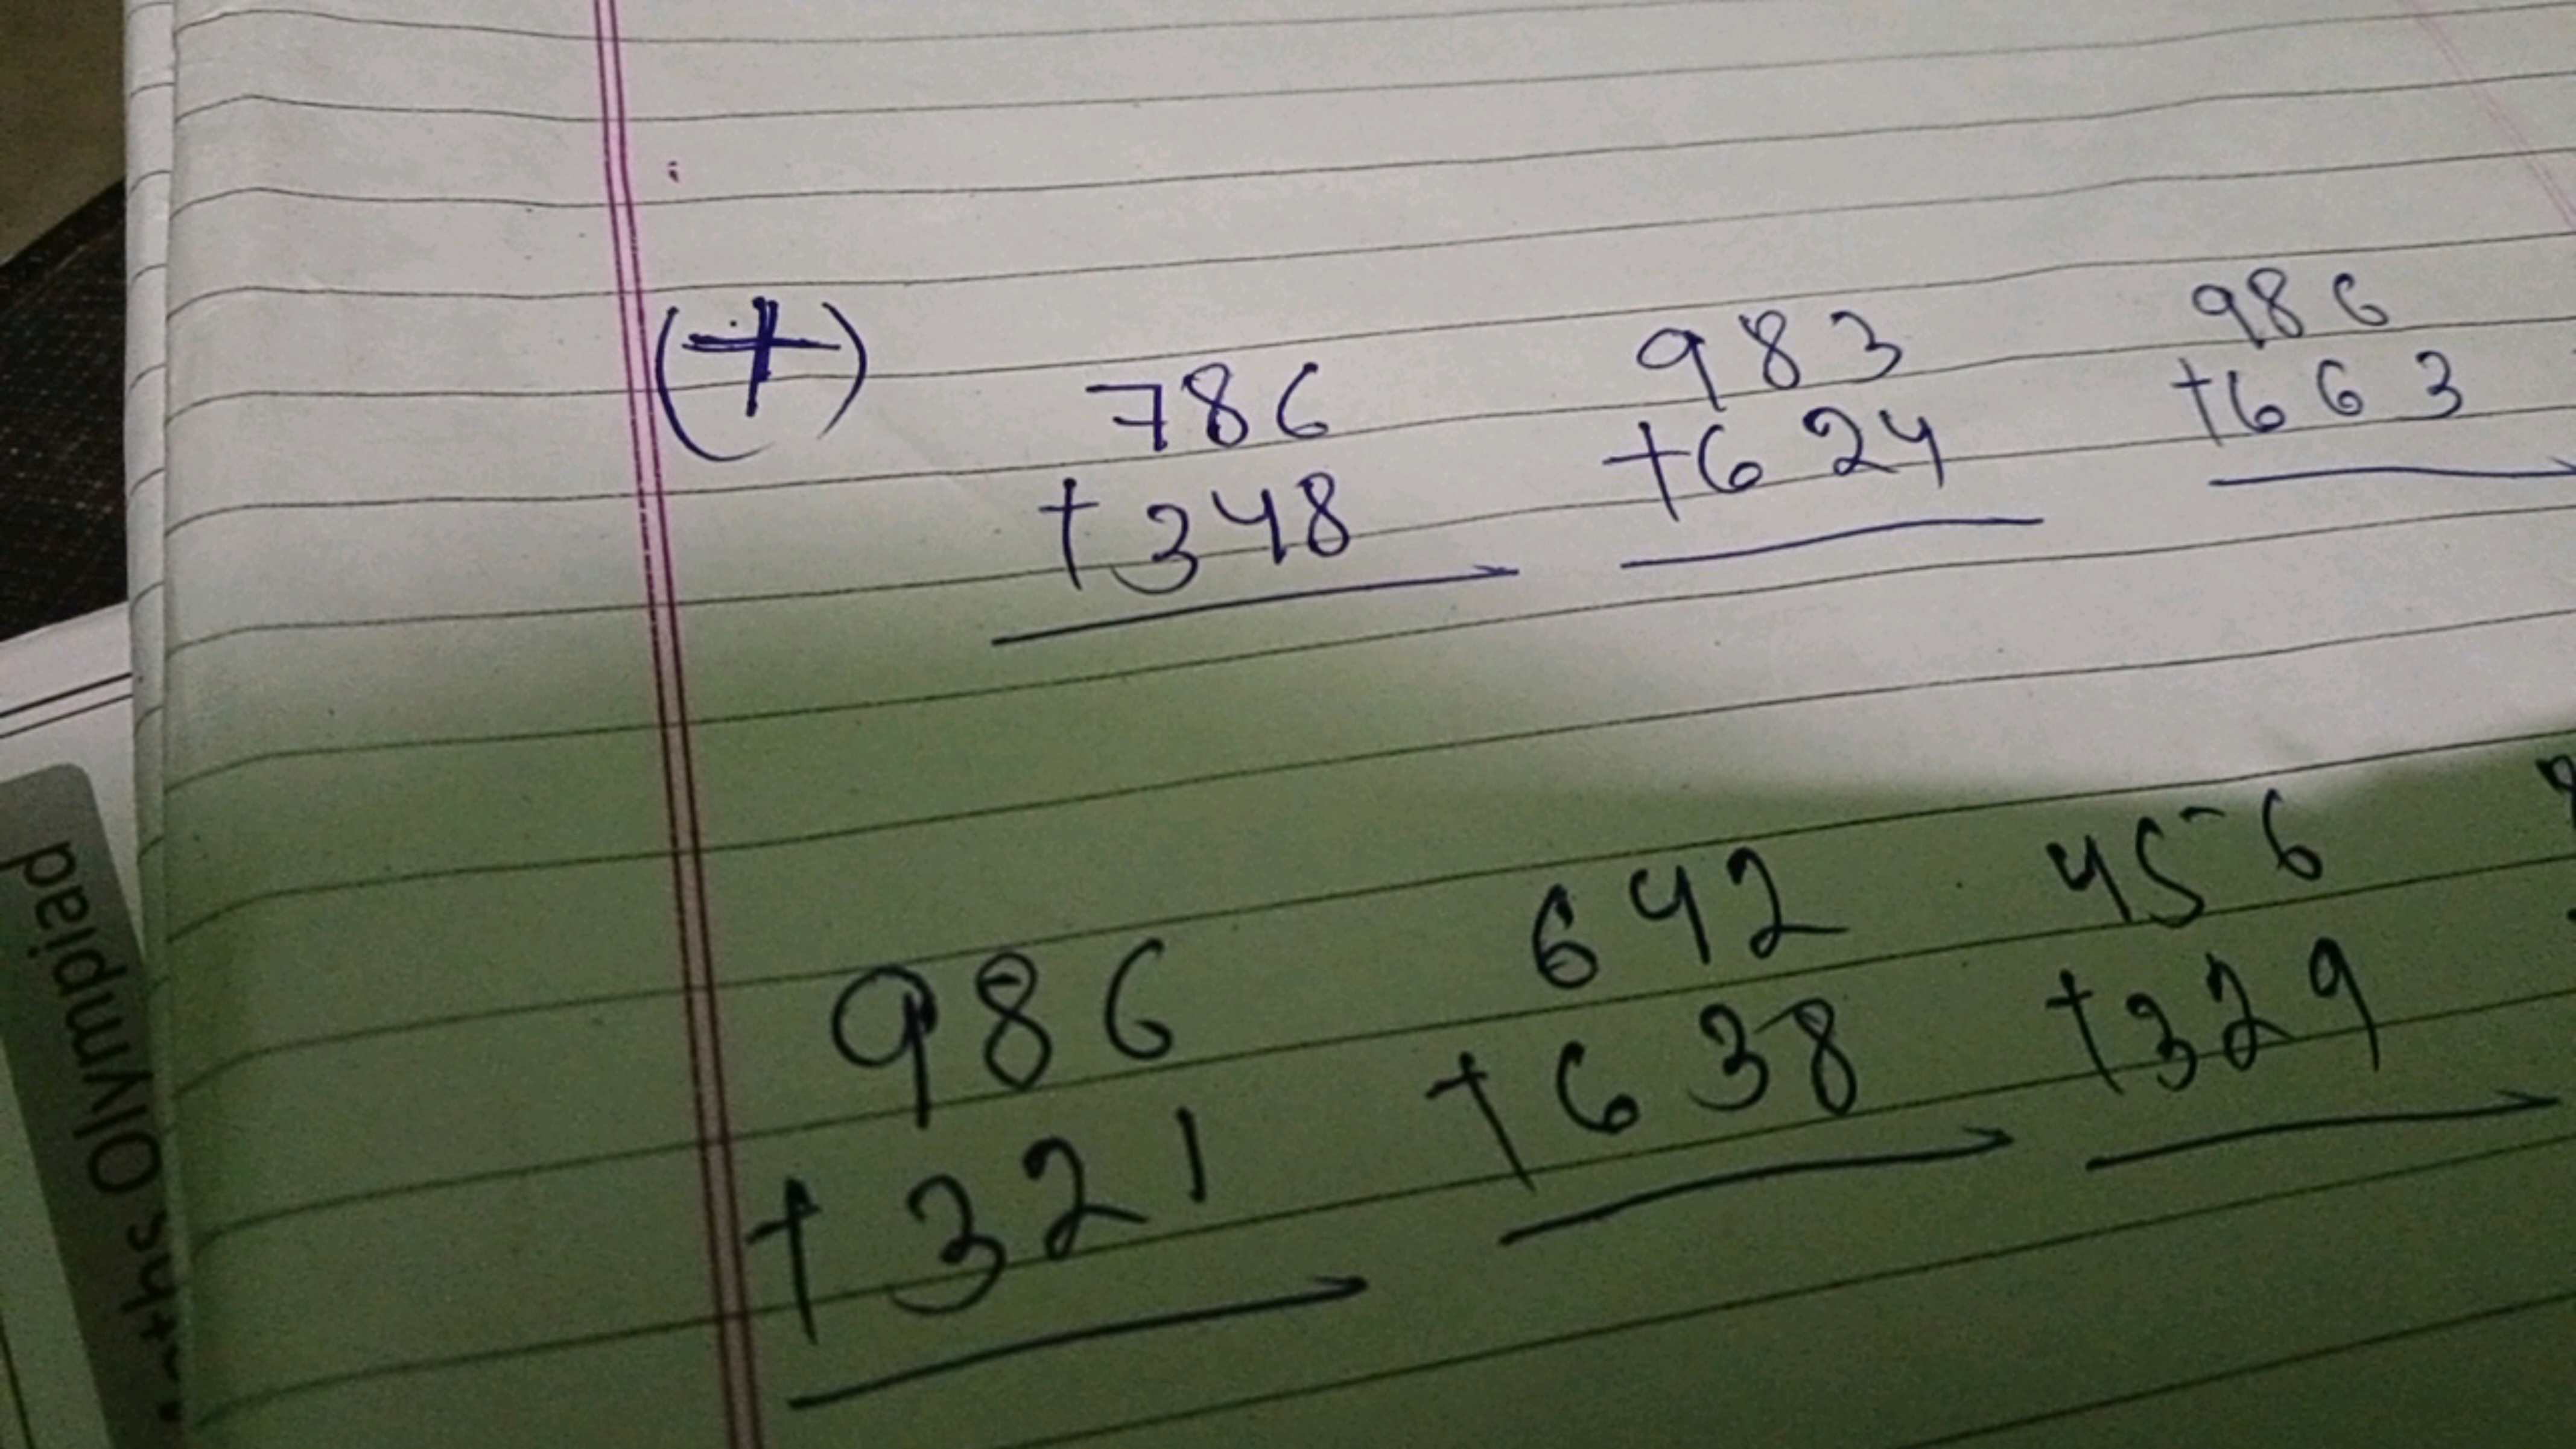 (+)
786 983 986
+348 +624 +663
986 642 456
+321 +638 +329
Olympiad